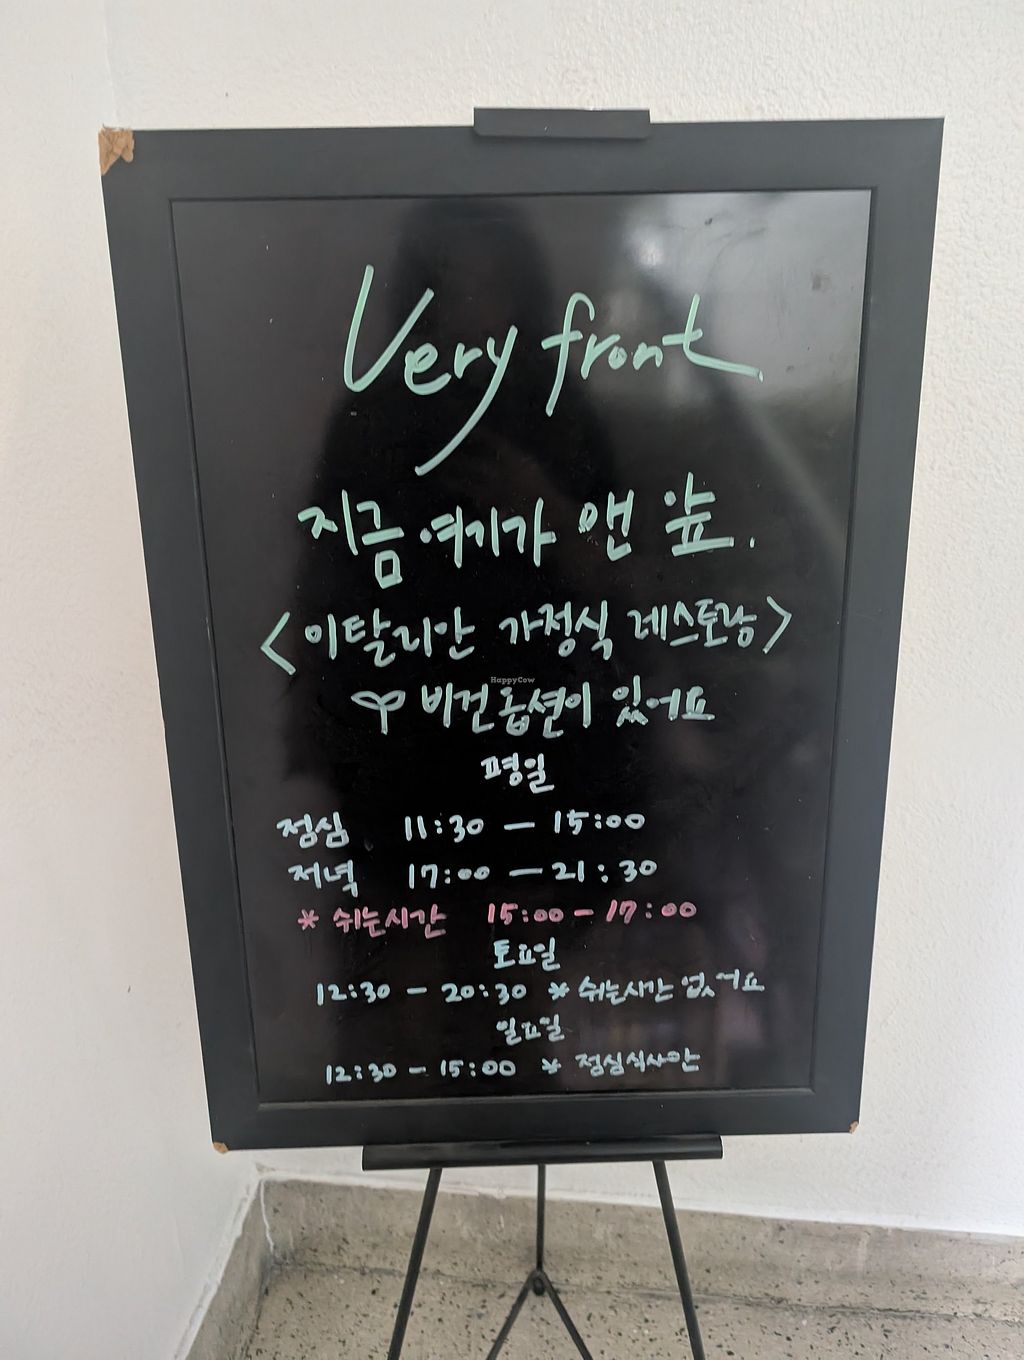 Very front.
지금 여기가 맨 앞.
<이탈리안 가정식 레스토랑>
HappyCow
비건옵션이 있어요
평일
점심 11:30 - 15:00
저녁 17:00 - 21:30
* 쉬는시간 15:00 - 17:00
토요일
12:30 - 20:30 * 쉬는시간 없어요
일요일
12:30 - 15:00 * 점심식사만